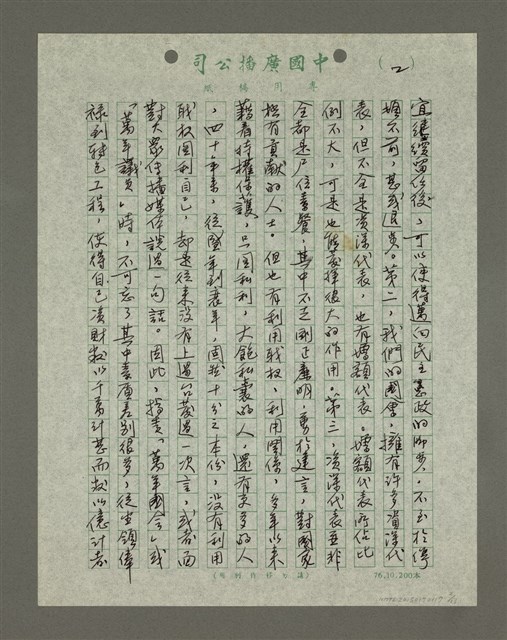 中國廣播公司
(2)
宜繼續留任後，可以使得邁向民主憲政的腳步。不至於停
頓不前，甚或退步。第二，我們的國會，擁有許多資深代
表，但不全是資深代表，也有增額代表。增額代表所佔比
例不大，可是也能發揮很大的作用。第三，資深代表並非
全都是尸位素餐，其中不乏剛正廉明，勇於建言，對國家
極有貢獻的人士。但也有利用職权，利用關係，多年以來
藉着特權保護，只圖私利，大飽私囊的人，還有更多的人
，四十年來，從盛年到衰年，固然十分之本份，沒有利用
職权圖利自己，却是從來沒有上過台發過一次言，或者面
對大眾傳播媒体說過一句話。因此，指責「萬年國会」或
「萬年議員」時，不可忘了其中素質差別很多，從坐領俸
祿到特色工程，使得自己資財数以千萬計甚而数以億計者
76.10.200本